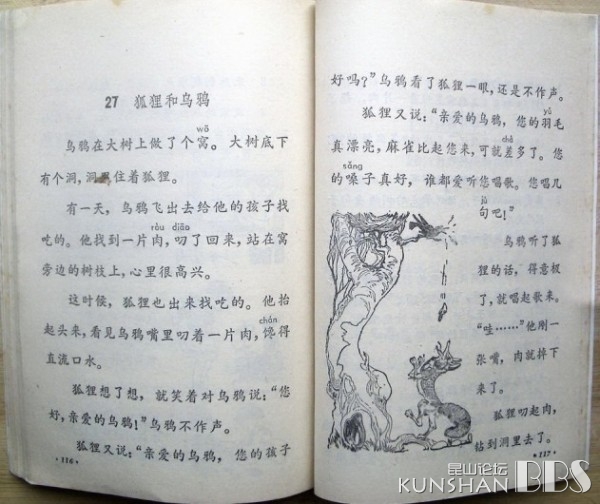 27 狐狸和乌鸦
wō
乌鸦在大树上做了个窝。大树底下
有个洞，洞里住着狐狸。
有一天，乌鸦飞出去给他的孩子找
ròu diāo
吃的。他找到一片肉，叼了回来，站在窝
旁边的树枝上，心里很高兴。
这时候，狐狸也出来找吃的。他抬
chán
起头来，看见乌鸦嘴里叼着一片肉，馋得
直流口水。
狐狸想了想，就笑着对乌鸦说：“您
好，亲爱的乌鸦！”乌鸦不作声。
狐狸又说：“亲爱的乌鸦，您的孩子
·116·
好吗？”乌鸦看了狐狸一眼，还是不作声。
yǔ
狐狸又说：“亲爱的乌鸦，您的羽毛
chà
真漂亮，麻雀比起您来，可就差多了。您
sǎng
的嗓子真好，谁都爱听您唱歌。您唱几
jù
句吧！”
乌鸦听了狐
狸的话，得意极
了，就唱起歌来。
“哇……”他刚一
张嘴，肉就掉下
来了。
狐狸叼起肉，
钻到洞里去了。
·117·
昆山论坛
KUNSHAN BBS